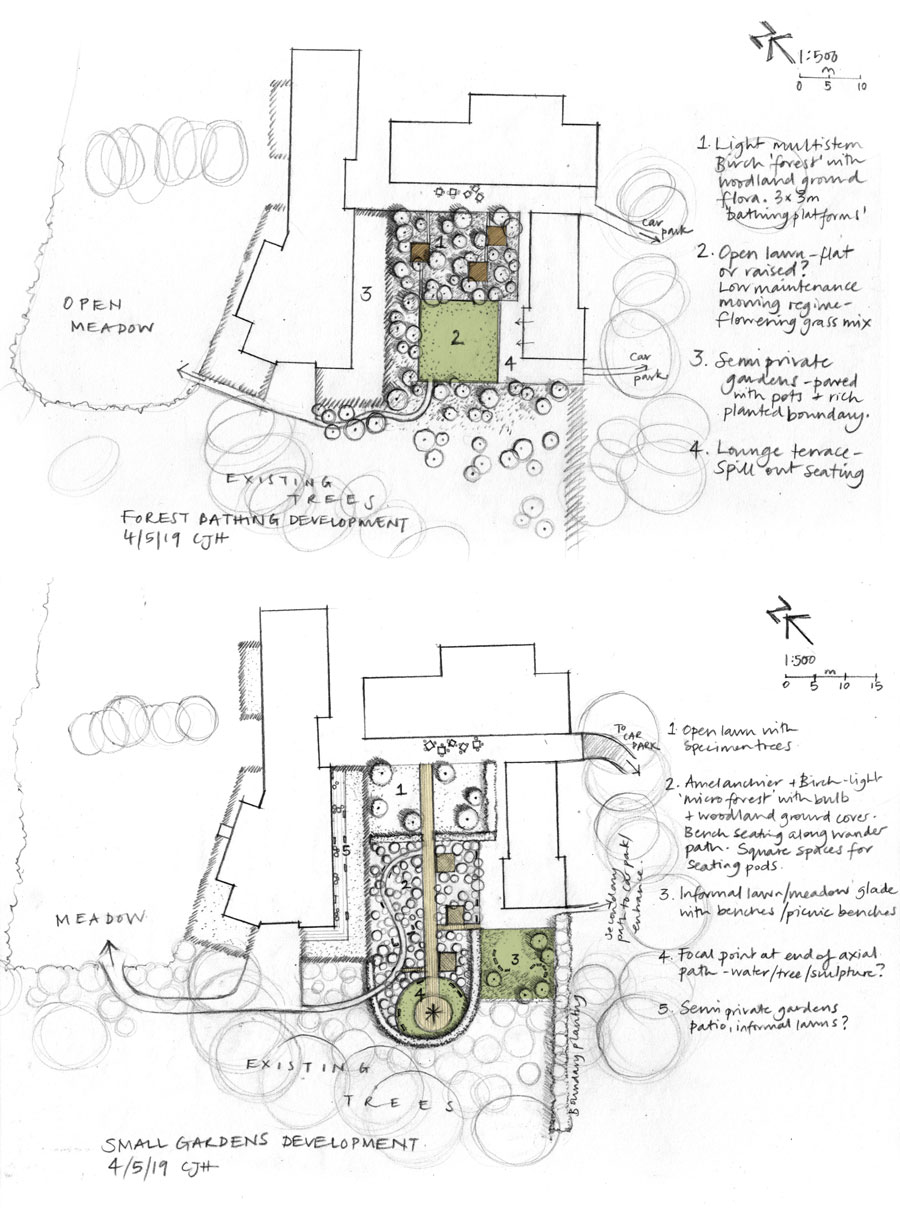 N
1:500
m
0 5 10
1. Light multistem
Birch 'forest' with
woodland ground
flora. 3x3m
'bathing platforms'
car
park
2. Open lawn - flat
or raised?
Low maintenance
mowing regime -
flowering grass mix
OPEN
MEADOW
1
2
3
4
car
park
3. Semi private
gardens - paved
with pots + rich
planted boundary.
4. Lounge terrace -
Spill out seating
EXISTING
TREES
FOREST BATHING DEVELOPMENT
4/5/19 CJH
N
1:500
m
0 5 10 15
TO
CAR
PARK
1 Open lawn with
specimen trees.
2. Amelanchier + Birch - light
'micro forest' with bulb
+ woodland ground cover.
Bench seating along wander
path. Square spaces for
seating pods.
3. Informal lawn/meadow glade
with benches/picnic benches
4. Focal point at end of axial
path - water/tree/sculpture?
5. Semi private gardens
patio, informal lawns?
1
2
3
4
5
MEADOW
secondary
path to car park/
entrance.
Boundary planting
EXISTING
TREES
SMALL GARDENS DEVELOPMENT.
4/5/19 CJH